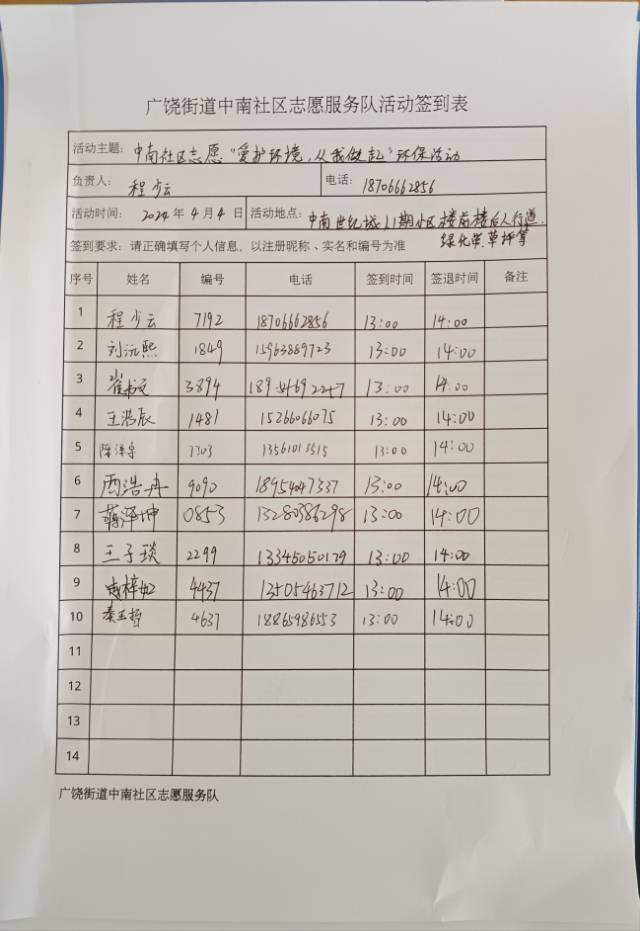 广饶街道中南社区志愿服务队活动签到表
活动主题: 中南社区志愿“爱护环境,从我做起”环保活动
负责人: 程少云 电话: 18706662856
活动时间: 2024年4月4日 活动地点: 中南世纪城11期小区楼前楼后人行道、
绿化带、草坪等
签到要求: 请正确填写个人信息, 以注册昵称、实名和编号为准
序号 姓名 编号 电话 签到时间 签退时间 备注
1 程少云 7192 18706662856 13:00 14:00
2 刘沅熙 1849 15963889723 13:00 14:00
3 崔书文 3894 13:00 14:00
4 王浩辰 1481 15266066075 13:00 14:00
5 陈泽宇 7303 13:00 14:00
6 浩冉 9090 18954047337 13:00 14:00
7 蒋泽坤 0853 13280386298 13:00 14:00
8 王子琰 2299 13345050179 13:00 14:00
9 梓妃 4437 13505463712 13:00 14:00
10 秦玉哲 4637 18865986553 13:00 14:00
11
12
13
14
广饶街道中南社区志愿服务队